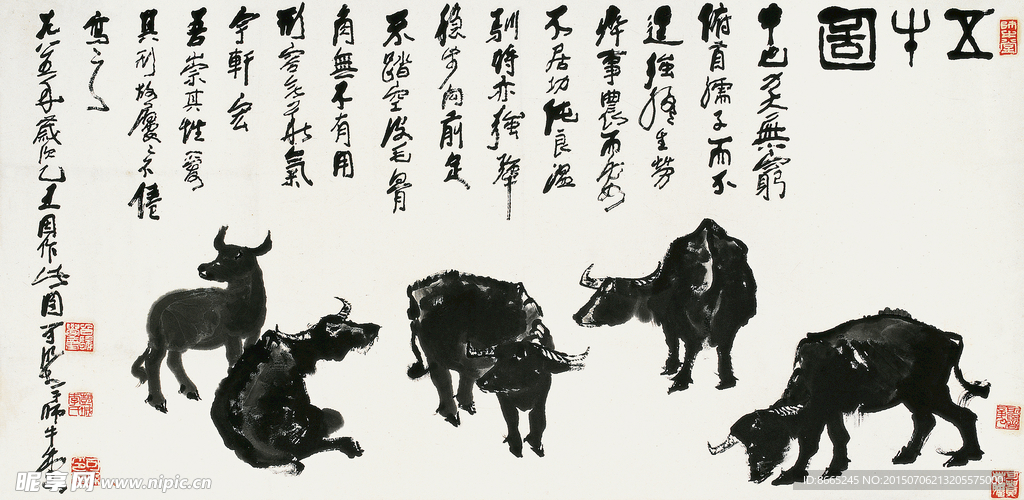 五牛圖
牛也力大無窮
俯首孺子而不
逞強終生勞
瘁事農而安
不居功純良溫
馴時亦強犟
穩步向前足
不踏空皮毛骨
角無不有用
形容無華氣
宇軒宏
吾崇其性愛
其形故屢屢不倦
寫之
歲次乙丑 作此圖 可染 師牛堂
昵享网 www.nipic.cn
ID:8665245 NO:20150706213205575000